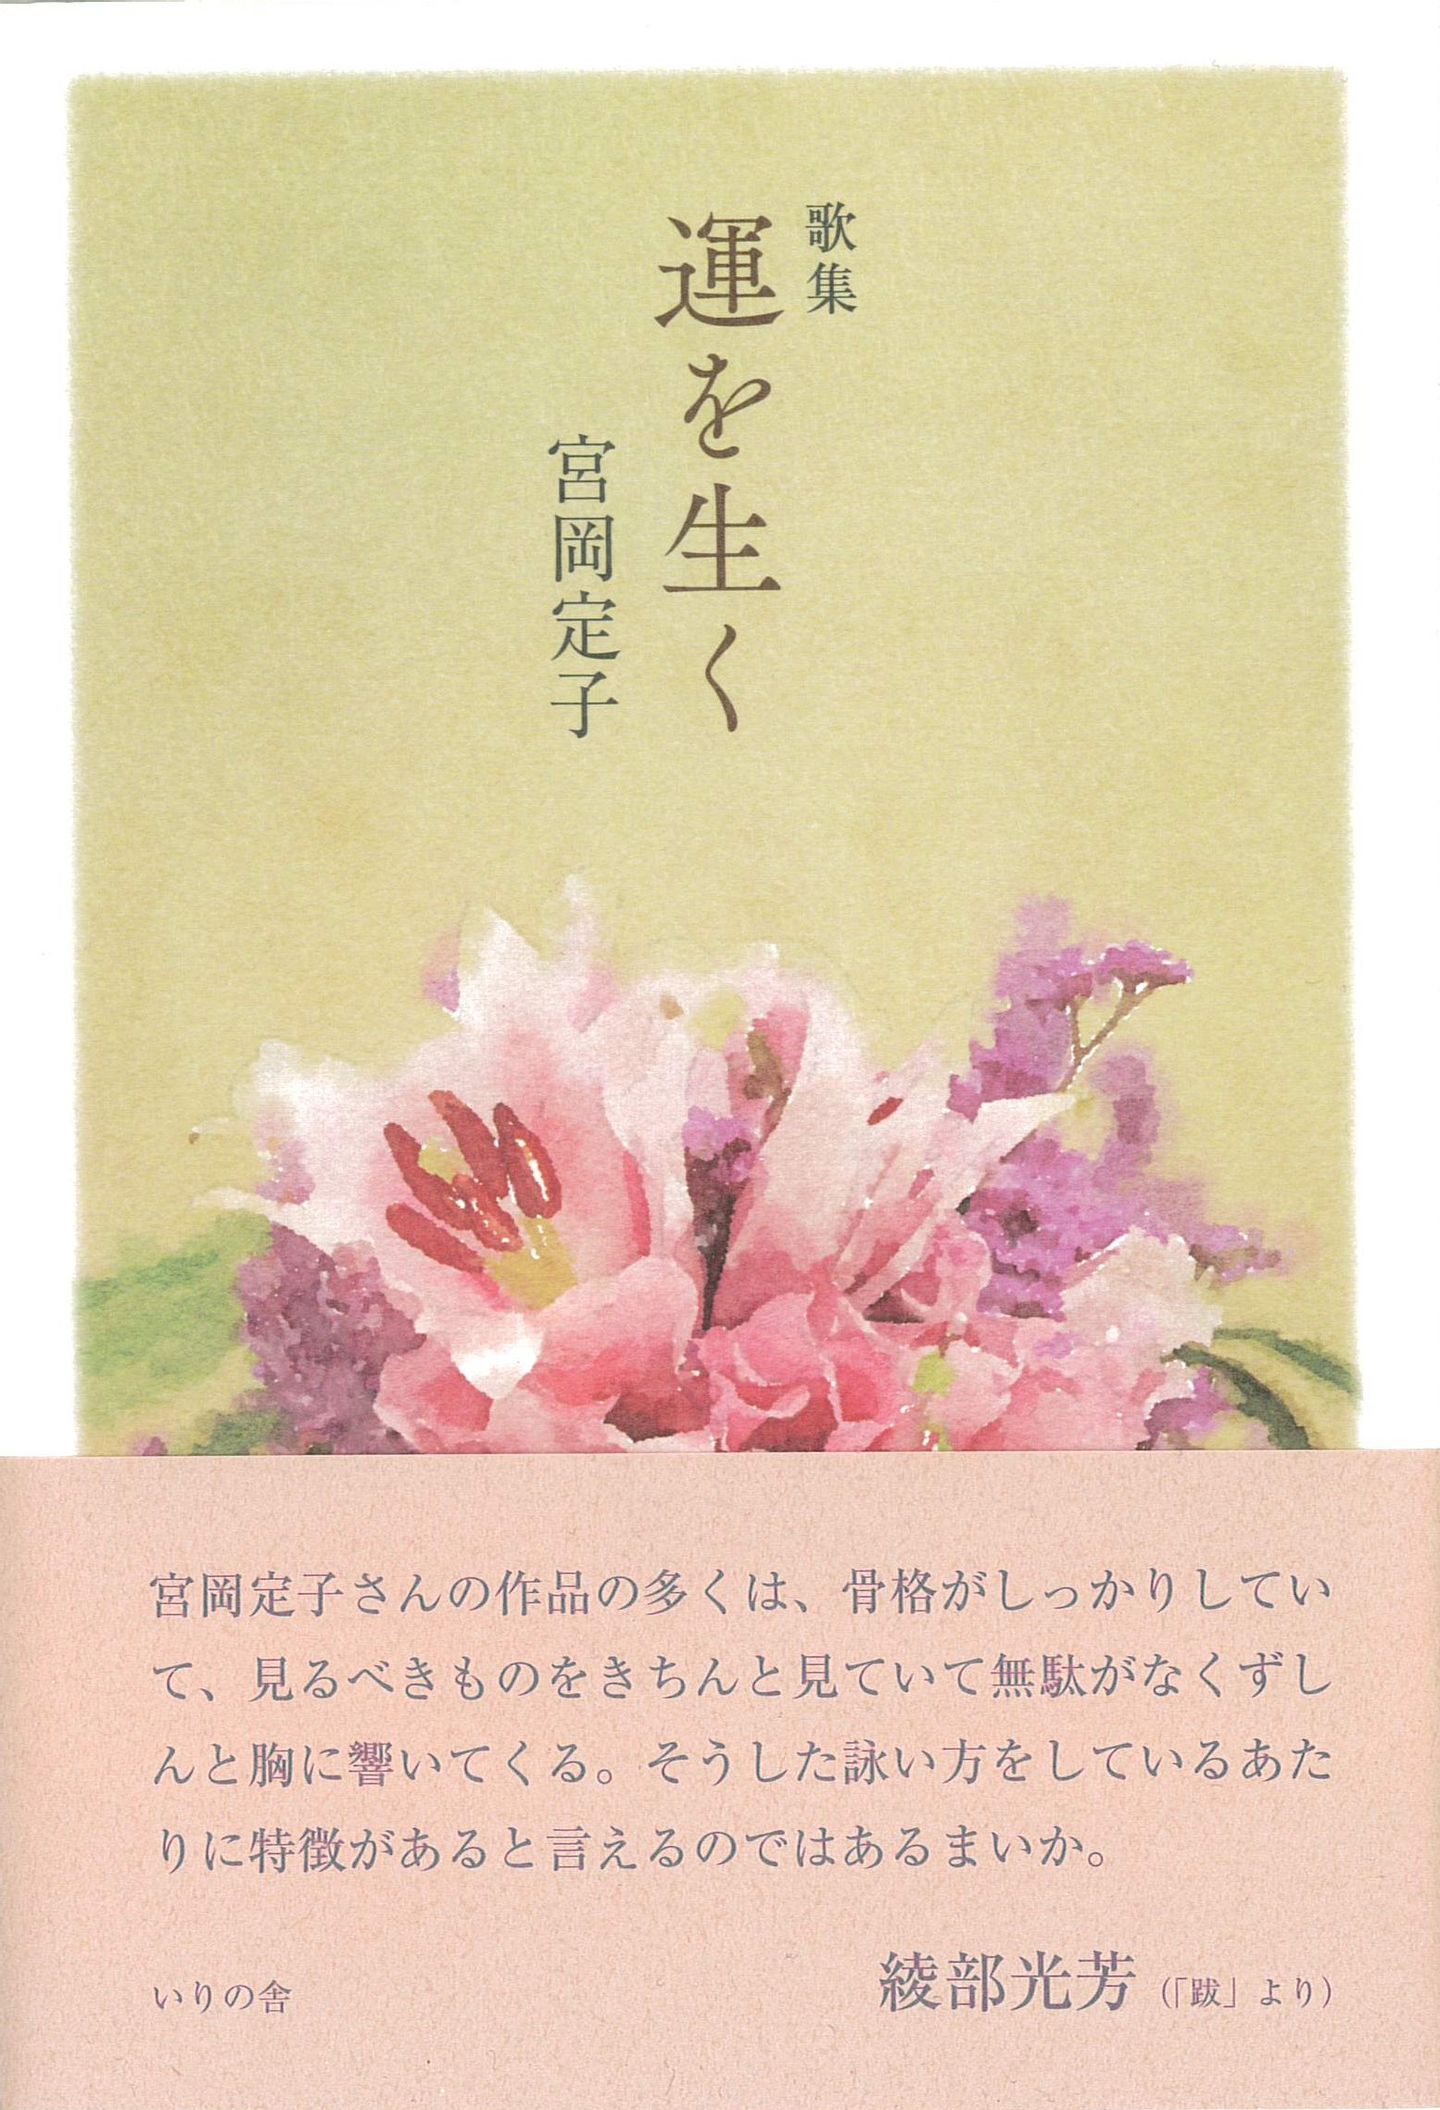 歌集
運を生く
宮岡定子
宮岡定子さんの作品の多くは、骨格がしっかりしてい
て、見るべきものをきちんと見ていて無駄がなくずし
んと胸に響いてくる。そうした詠い方をしているあた
りに特徴があると言えるのではあるまいか。
綾部光芳（「跋」より）
いりの舎